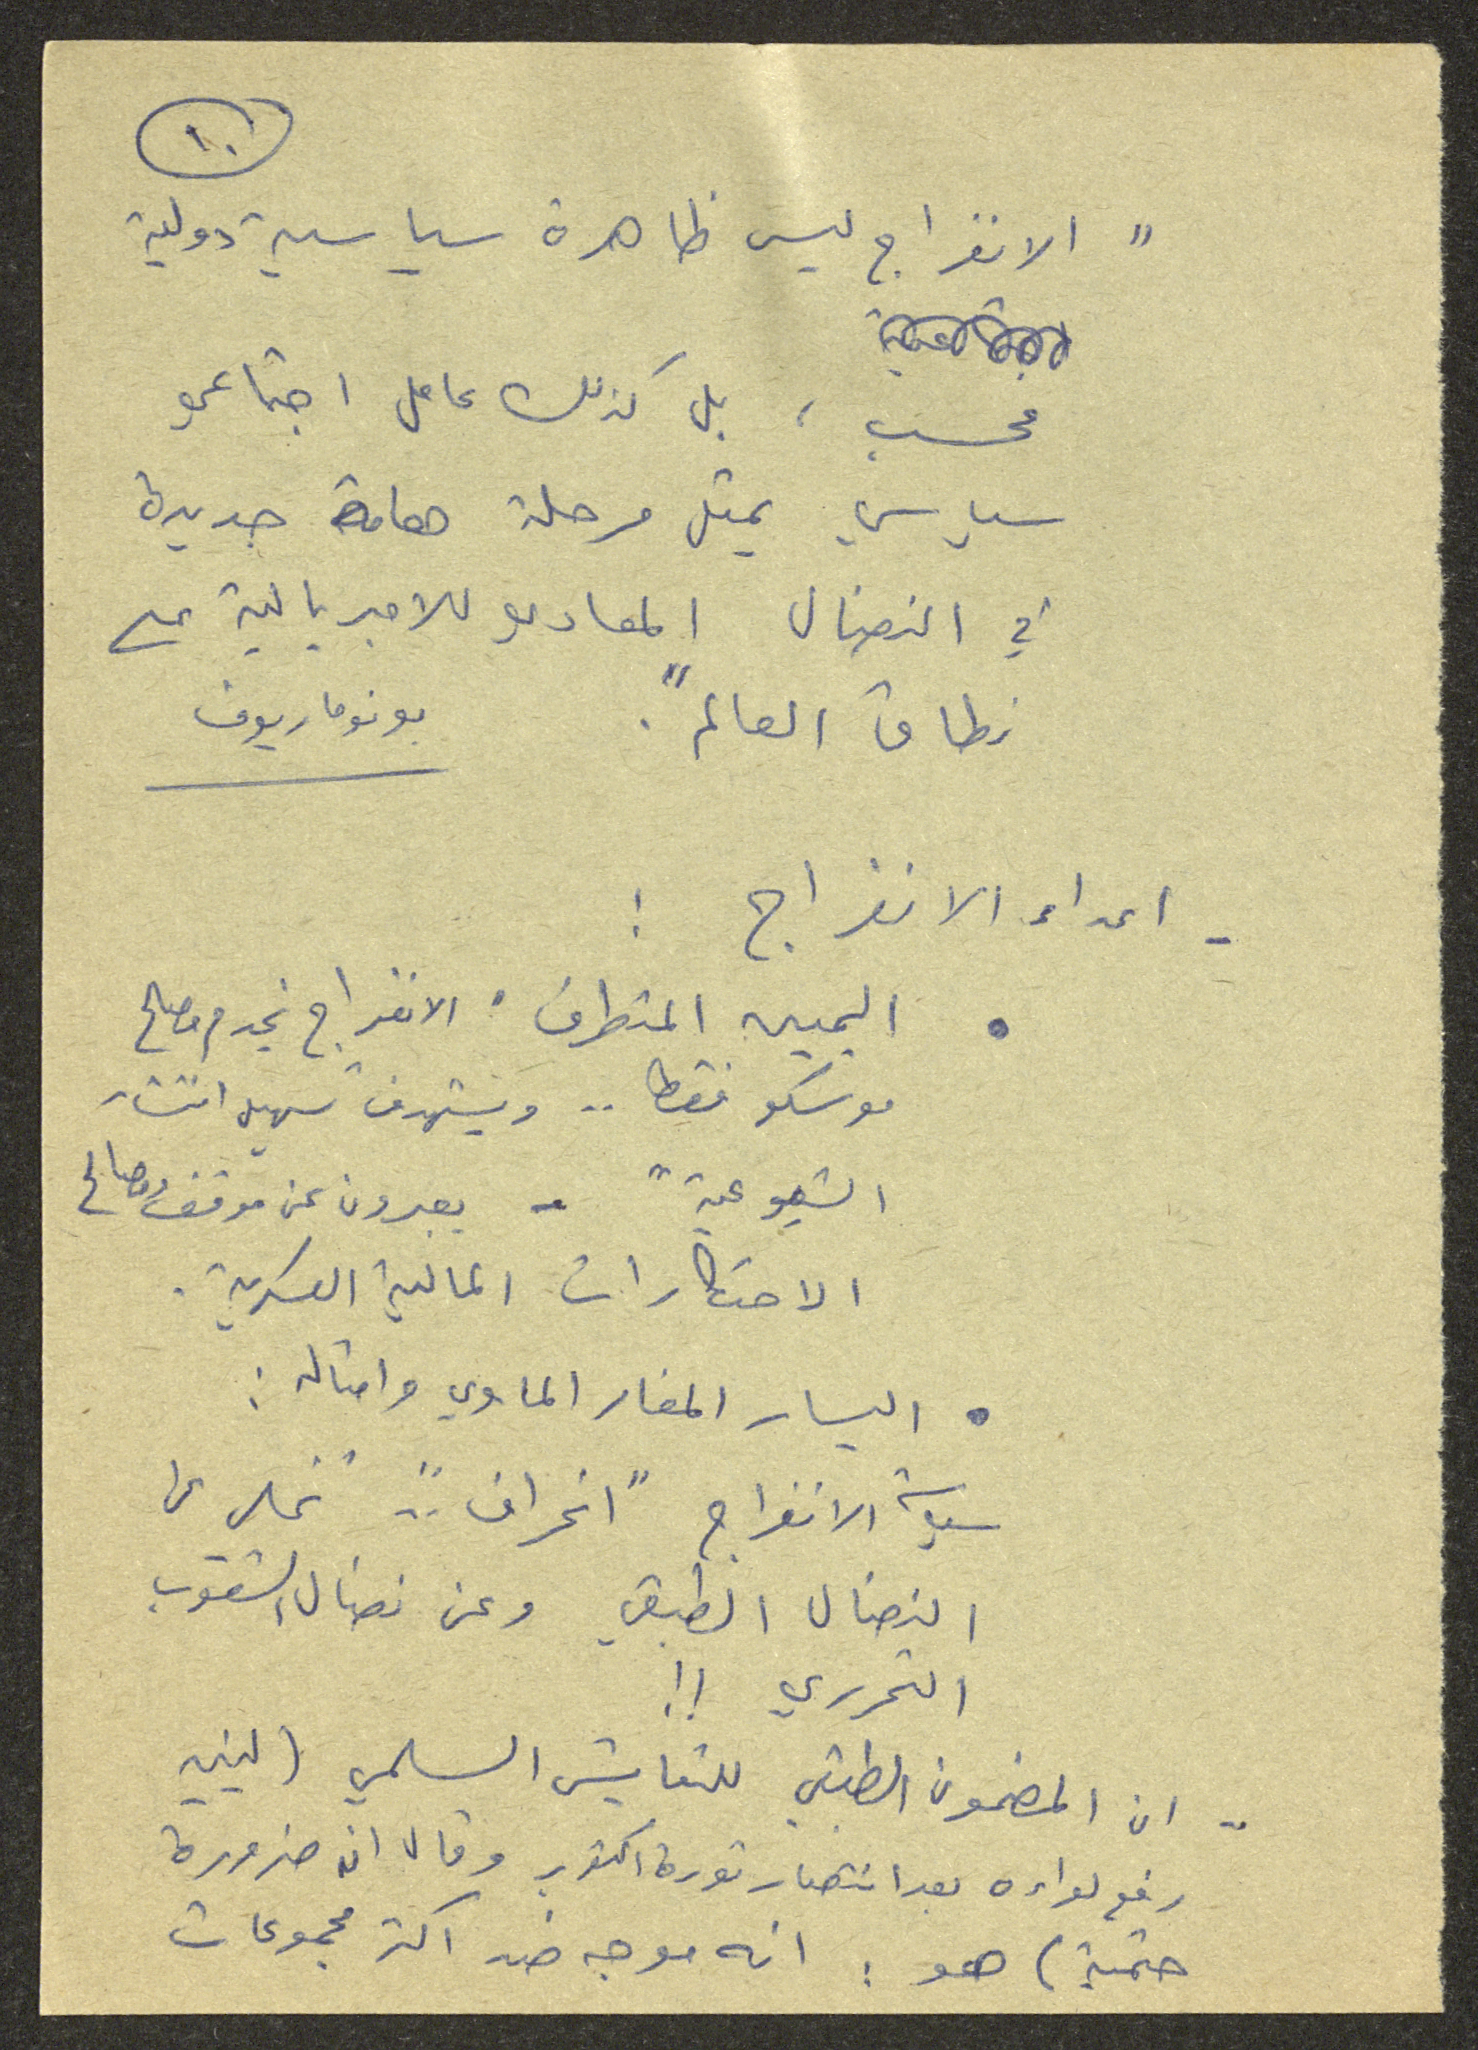 ١٠
" الانفراج ليس ظاهرة سياسية دولية
فحسب ، بل كذلك عامل اجتماعي
سياسي يمثل مرحلة هامة جديدة
في النضال المعادي للامبريالية على
نطاق العالم ".
بونوماريوف
- اعداء الانفراج :
• اليمين المتطرف " الانفراج يخدم مصالح
موسكو فقط .. ويستهدف تسهيل انتشار
الشيوعية " - يعبرون عن موقف ومصالح
الاحتكارات المالية العسكرية .
• اليسار المغامر الماوي وامثاله :
سياسة الانفراج " انحراف .. " تخلي عن
النضال الطبقي وعن نضال الشعوب
التحرري !!
- ان المضمون الطبقي للتعايش السلمي (لينين
رفع لواءه بعد انتصار ثورة اكتوبر وقال انه ضرورة
حتمية) هو : انه موجه ضد اكثر مجموعات